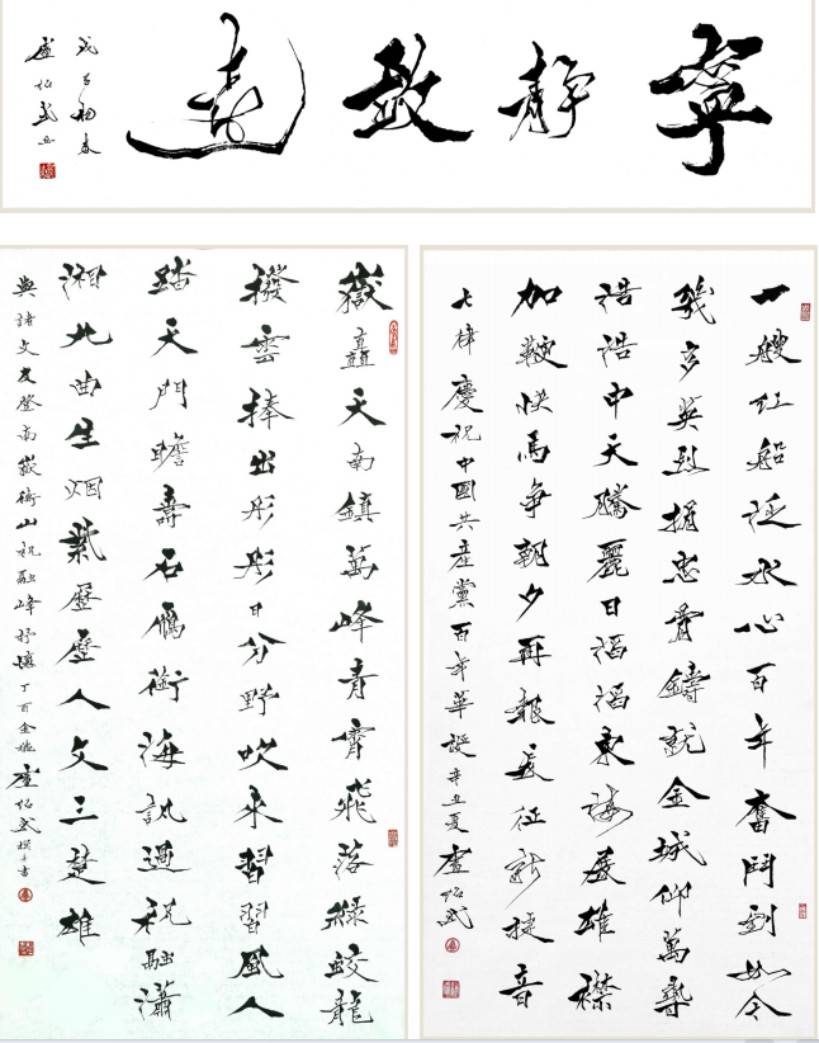 寧靜致遠
初春
盧紹武書
一艘紅船泛水心百年奮鬥到如今
幾多英烈捐忠骨鑄就金城仰萬尋
浩浩中天騰麗日滔滔東海展雄襟
加鞭快馬爭朝夕再報長征新捷音
七律慶祝中國共產黨百年華誕辛丑夏盧紹武
嶽矗天南鎮萬峰青霄飛落綠蛟龍
撥雲捧出彤彤日分野吹來習習風人
踏天門瞻壽石雁銜海訊過祝融瀟
湘北曲生烟紫歷歷人文三楚雄
與諸文友登南嶽衡山祝融峰抒懷丁酉金秋盧紹武撰并書